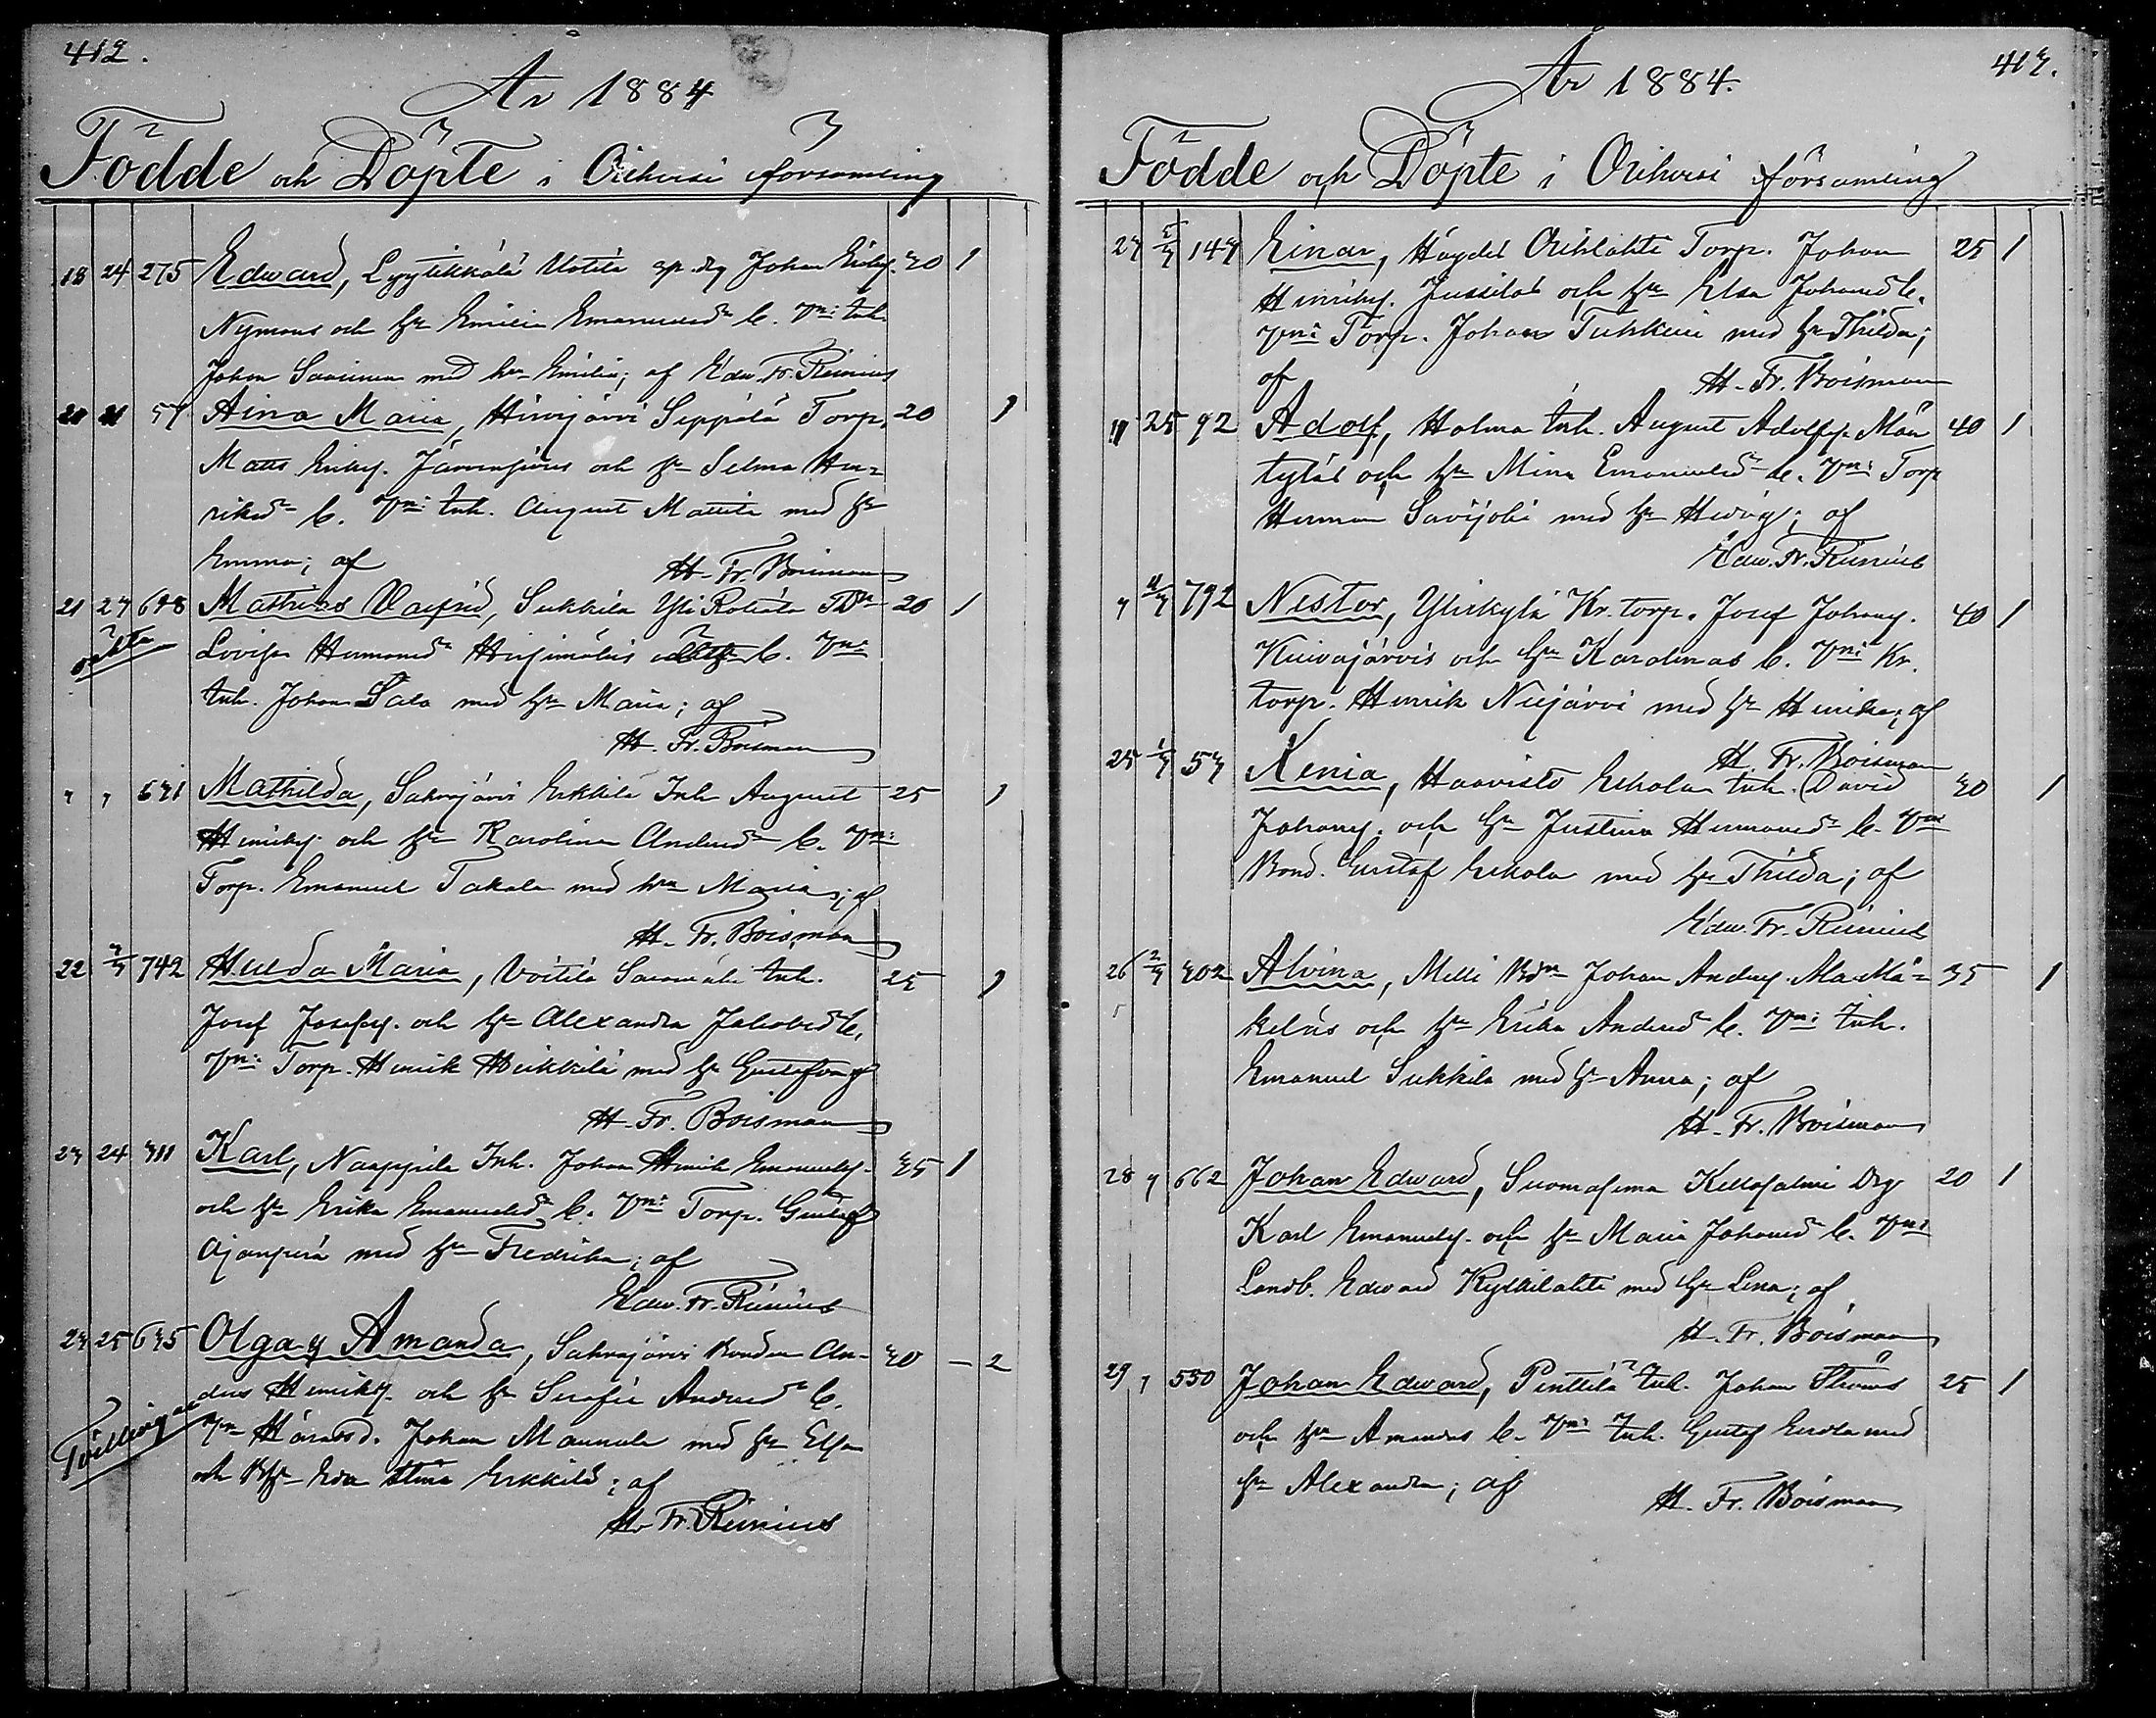 412.
År 1884
Födde och Döpte i Orihvesi församling
18 24 275 Edward, Lyytikkälä Uotila sp. drg Johan Eriks. 30 1
Nymans och hu Emilia Emanuelsdr b. Vni: Inh.
Johan Saarinen med hu Emilia; af Edw. Fr. Rinius
20 21 51 Aina Maria, Hirvijärvi Seppälä Torp. 20 1
Matts Eriks. Järvensivus och hu Selma Hen-
riksdr b. Vni: Inh. August Mattila med hu
Emma; af H. Fr. Boisman
21 27 678 Mathias Valfrid, Sukkila Yli Rotiala TDr 20 1
oäkta Lovisa Hermansdr Harjumäkis b. Vni
Inh. Johan Salo med hu Maria; af
H. Fr. Boisman
" " 631 Mathilda, Sahrajärvi Erkkilä Inh August 25 1
Henriks. och hu Karolina Andersdr b. Vni:
Torp. Emanuel Takala med hu Maria; af
H. Fr. Boisman
22 742 Hulda Maria, Voitila Inh. 25 1
Josef Josefs. och hu Alexandra Jakobsdr b.
Vni: Torp. Henrik Heikkilä med hu Gustafva; af
H. Fr. Boisman
23 24 311 Karl, Naappila Inh. Johan Henrik Emanuels. 35 1
och hu Erika Emanuelsdr b. Vni: Torp. Gustaf
Ajanperä med hu Fredrika; af
Edw. Fr. Rinius
23 25 635 Olga & Amanda, Sahrajärvi Bonden An- 30 — 2
Tvillingar ders Henriks. och hu Serafia Andersdr b.
Vni Häradsd. Johan Mannula med hu Elsa
och Bhu Eva Stina Erkkilä; af
H. Fr. Rinius
413.
År 1884.
Födde och Döpte i Orihvesi församling
23 5/3 143 Einar, Hagdel Orihlahti Torp. Johan 25 1
Henriks. Jussilas och hu Elsa Johansdr b.
Vni: Torp. Johan Tuhkuri med hu Thilda;
af H. Fr. Boisman
" 25 92 Adolf, Holma Inh. August Adolfs. Män 40 1
tyläs och hu Mina Emanuelsdr b. Vni: Torp
Herman Savijoki med hu Hedvig; af
Edw. Fr. Rinius
" 792 Nestor, Ylikylä Kr. torp. Josef Johans. 40 1
Kuivajärvis och hu Karolinas b. Vni: Kr.
torp. Henrik Niijärvi med hu Henrika; af
H. Fr. Boisman
25 1/3 53 Xenia, Haavisto Erkola Inh. David 30 1
Johans. och hu Justina Hermansdr b. Vni
Bond. Gustaf Erkola med hu Thilda; af
Edw. Fr. Rinius
26 2/3 302 Alvina, Melli Bdn Johan Anders. Ma Mä- 35 1
keläs och hu Erika Andersdr b. Vni: Inh.
Emanuel Sukkila med hu Anna; af
H. Fr. Boisman
28 " 662 Johan Edward, Suomasema Keltasalmi Drg 20 1
Karl Emanuels. och hu Maria Johansdr b. Vni:
Landb. Edward Kyllilahti med hu Lena; af
H. Fr. Boisman
29 " 550 Johan Edward, Penttilä Inh. Johan Ströms 25 1
och hu Amandas b. Vni: Inh. Gustaf med
hu Alexandra; af H. Fr. Boisman